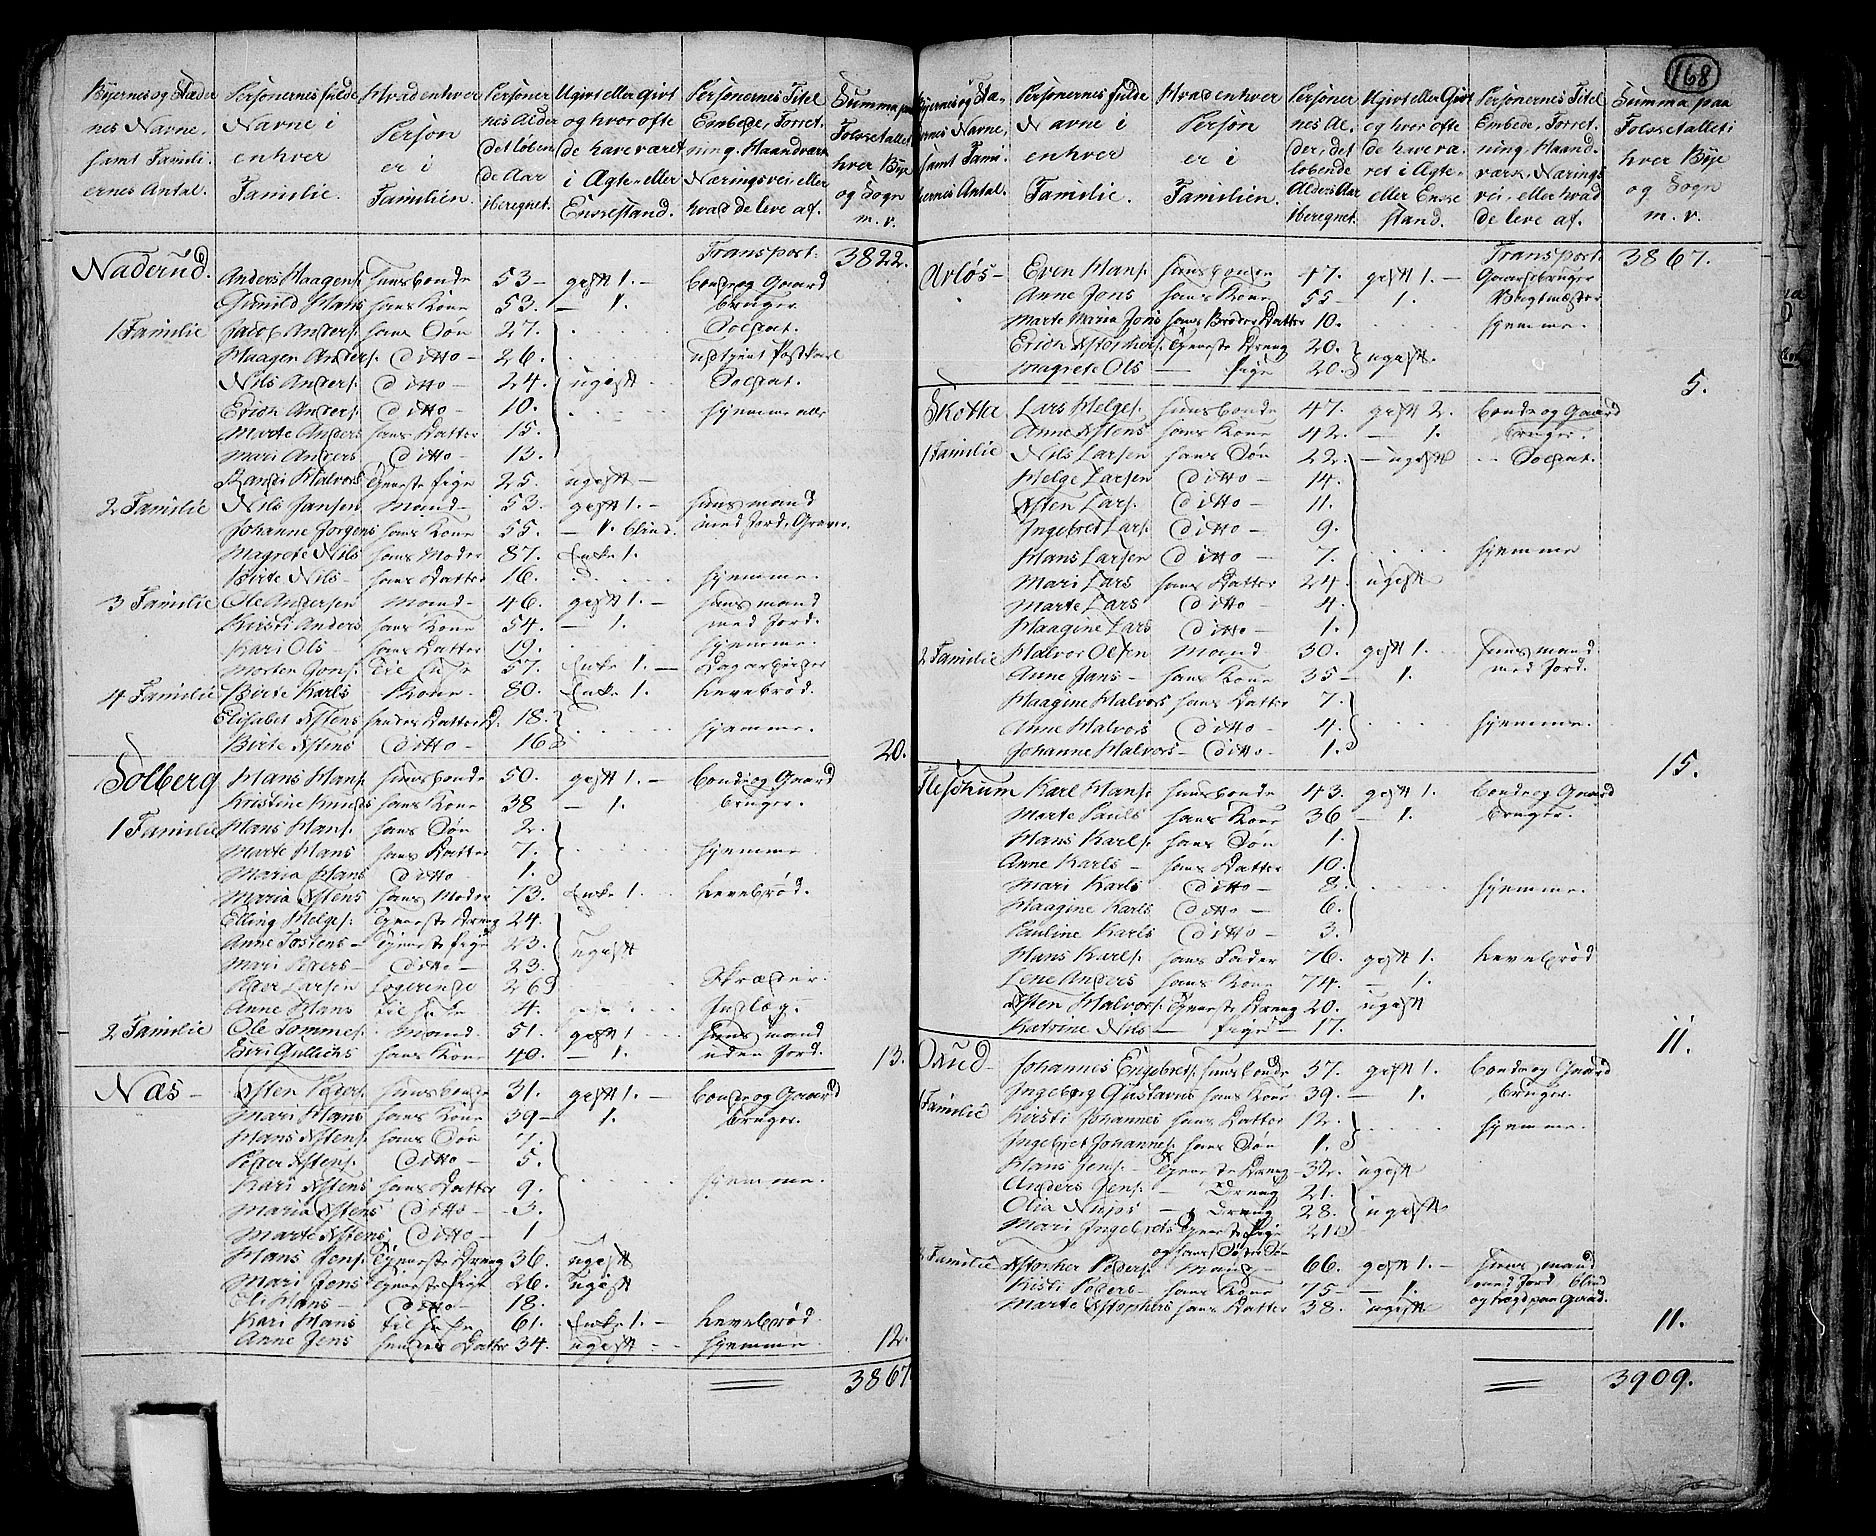 168
Byernes og Stæder
nes Navne,
samt Famili
ernes Antal.
Personernes fulde
Navne i
enhver
Familie.
Hvad enhver
Person
er i
Familien.
Personer
nes Alder
det løben
de Aar
iberegnet.
Ugivt eller Givt
og hvor ofte
de have været
i Ægte- eller
Enkestand.
Personernes Titel
Embede, Forret
ning, Haandværk
Næringsvei, eller
hvad de leve af.
Summa paa
Folketallet i
hver Bye
og Sogn
m. v.
Transport. 3822.
Naderud. Anders Haagens. Huusbonde 53 - gift 1. - Bonde og Gaard
Gunild Hans hans Kone 53. - 1. bruger
1 Familie Jacob Anders. hans Søn 27. Soldat.
Haagen Anders. Ditto - 26.
Nils Anders. Ditto - 24. ugift - Soldat.
Erich Anders. Ditto - 10. hjemme alle
Marte Anders hans Datter 15.
Mari Anders Ditto - 13.
Randi Halvors Tjeneste Pige 25. ugift -
2 Familie Nils Jansen Mand - 53. gift 1. - Huusmand
Johanne Jørgens hans Kone 55. - 1. blind. med Jord,
Magrete Nils hans Moder 87. Enke 1.
Birte Nils - hans Datter 16. hjemme.
3 Familie Ole Andersen Mand - 46. gift 1. - Huusmand
Kirsti Anders hans Kone 54. - 1. med Jord.
Kari Ols - hans Datter 19. hjemme.
Morten Jons. Til Huse 57. Enke 1. -
4 Familie Birte Karls Kone - 80. Enke 1. Levebrød.
Elisabet Astens hendes Datter D. 18.
Birte Astens Ditto - 16 hjemme.
20.
Solberg Hans Hans. Huusbonde 50. gift 1. - Bonde og Gaard
Kristine Knuds hans Kone 38 - 1. bruger.
1 Familie Hans Hans. hans Søn 2.
Marte Hans hans Datter 7. hjemme
Maria Hans Ditto - 1.
Maria Astens hans Moder 73. Enke 1. Levebrød.
Elling Helges. Tjeneste Dreng 24.
Anne Tostens - Tjeneste Pige 43. ugift
Mari Peders - Ditto - 23.
Peder Larsen Logerende 26 Skræder.
Anne Hans til Huse 4. Indlæg -
2 Familie Ole Tommes. Mand. 51. gift 1. Huusmand
Gullichs hans Kone 40. - 1. uden Jord.
13.
Næs - Asten Peders. Huusbonde 31. gift 1. Bonde og Gaard
Mari Hans hans Kone 39 - 1. bruger.
Hans Astens. hans Søn 7.
Peder Astens. Ditto - 5.
Kari Astens hans Datter 9. hjemme.
Maria Astens Ditto - 3.
Marte Astens Ditto - 1
Hans Jens. Tjeneste Dreng 36. ugift
Mari Jens Tjeneste Pige 26. ugift
Eli Hans - Ditto - 18.
Kari Hans til Huse 61. Enke 1. - Levebrød.
Anne Jens hendes Datter 34. ugift - hjemme
12.
3867
Byernes og Stæ-
ernes Navne,
samt Fami-
liernes Antal.
Personernes fulde
Navne i
enhver
Familie.
Hvad enhver
Person
er i
Familien.
Personer
nes Al-
der, det
løbende
Alders Aar
iberegnet.
Ugivt eller Givt
og hvor ofte
de have væ-
ret i Ægte-
eller Enke
stand.
Personernes Titel
Embede, Forret
ning, Haand
værk, Nærings
vei, eller hvad
de leve af.
Summa paa
Folketallet i
hver Bye
og Sogn
m. v.
Transport. 3867.
Arløs - Even Hans. Huusbonde 47. gift 1. - Gaardbruger
Anne Jons hans Kone 55 - 1.
Marte Maria Jons hans Broder Datter 10. hjemme.
Erich Astophers. Tjeneste Dreng 20. ugift.
Magrete Ols - Pige 20.
5.
Skotta Lars Helges. Huusbonde 47. gift 2. Bonde og Gaard
Anne Astens hans Kone 42. - 1. bruger.
1 Familie Nils Larsen hans Søn 22. - ugift - Soldat.
Helge Larsen Ditto - 14.
Asten Lars. Ditto - 11.
Ingebret Lars. Ditto - 9.
Hans Larsen Ditto - 7. hjemme
Mari Lars hans Datter 24. ugift
Marte Lars Ditto - 4.
Haagine Lars Ditto - 1.
2 Familie Halvor Olsen Mand - 30. gift 1. Huusmand
Anne Jans - hans Kone 35 - 1. med Jord.
Haagine Halvors hans Datter 7.
Anne Halvors Ditto - 4. hjemme.
Johanne Halvors - Ditto - 1.
15.
Karl Hans. Huusbonde 43. gift 1. Bonde og Gaard
Marte Pauls hans Kone 36 - 1. bruger.
Hans Karls. hans Søn 1.
Anne Karls - hans Datter 10.
Mari Karls Ditto - 8. hjemme.
Haagine Karls Ditto - 6.
Pauline Karls Ditto - 3.
Hans Karls. hans Fader 76. gift 1. Levebrød
Lene Anders hans Kone 74. - 1.
Asten Halvors. Tjeneste Dreng 20. ugift
Katrine Nils - Pige - 17.
11.
Oxrud - Johannes Engebrets. Huusbonde 37. gift 1. Bonde og Gaard
Ingeborg Gustavus hans Kone 39. - 1. bruger.
1 Familie Kirsti Johannes hans Datter 12. hjemme.
Ingebret Johannes. hans Søn 1.
Hans Jens. - Tjeneste Dreng - 32. ugift
Anders Jens. - Dreng 21.
Olia - Dreng 28. ugift
Mari Ingebrets Tjeneste Pige 21
og hans Søster Søn
2 Familie Astopher Peders. Mand - 66. gift 1. - Huusmand
Kisti Peders - hans Kone 75 - 1. med Jord blind
Marte Astophers hans Datter 38. ugift
11.
3909.